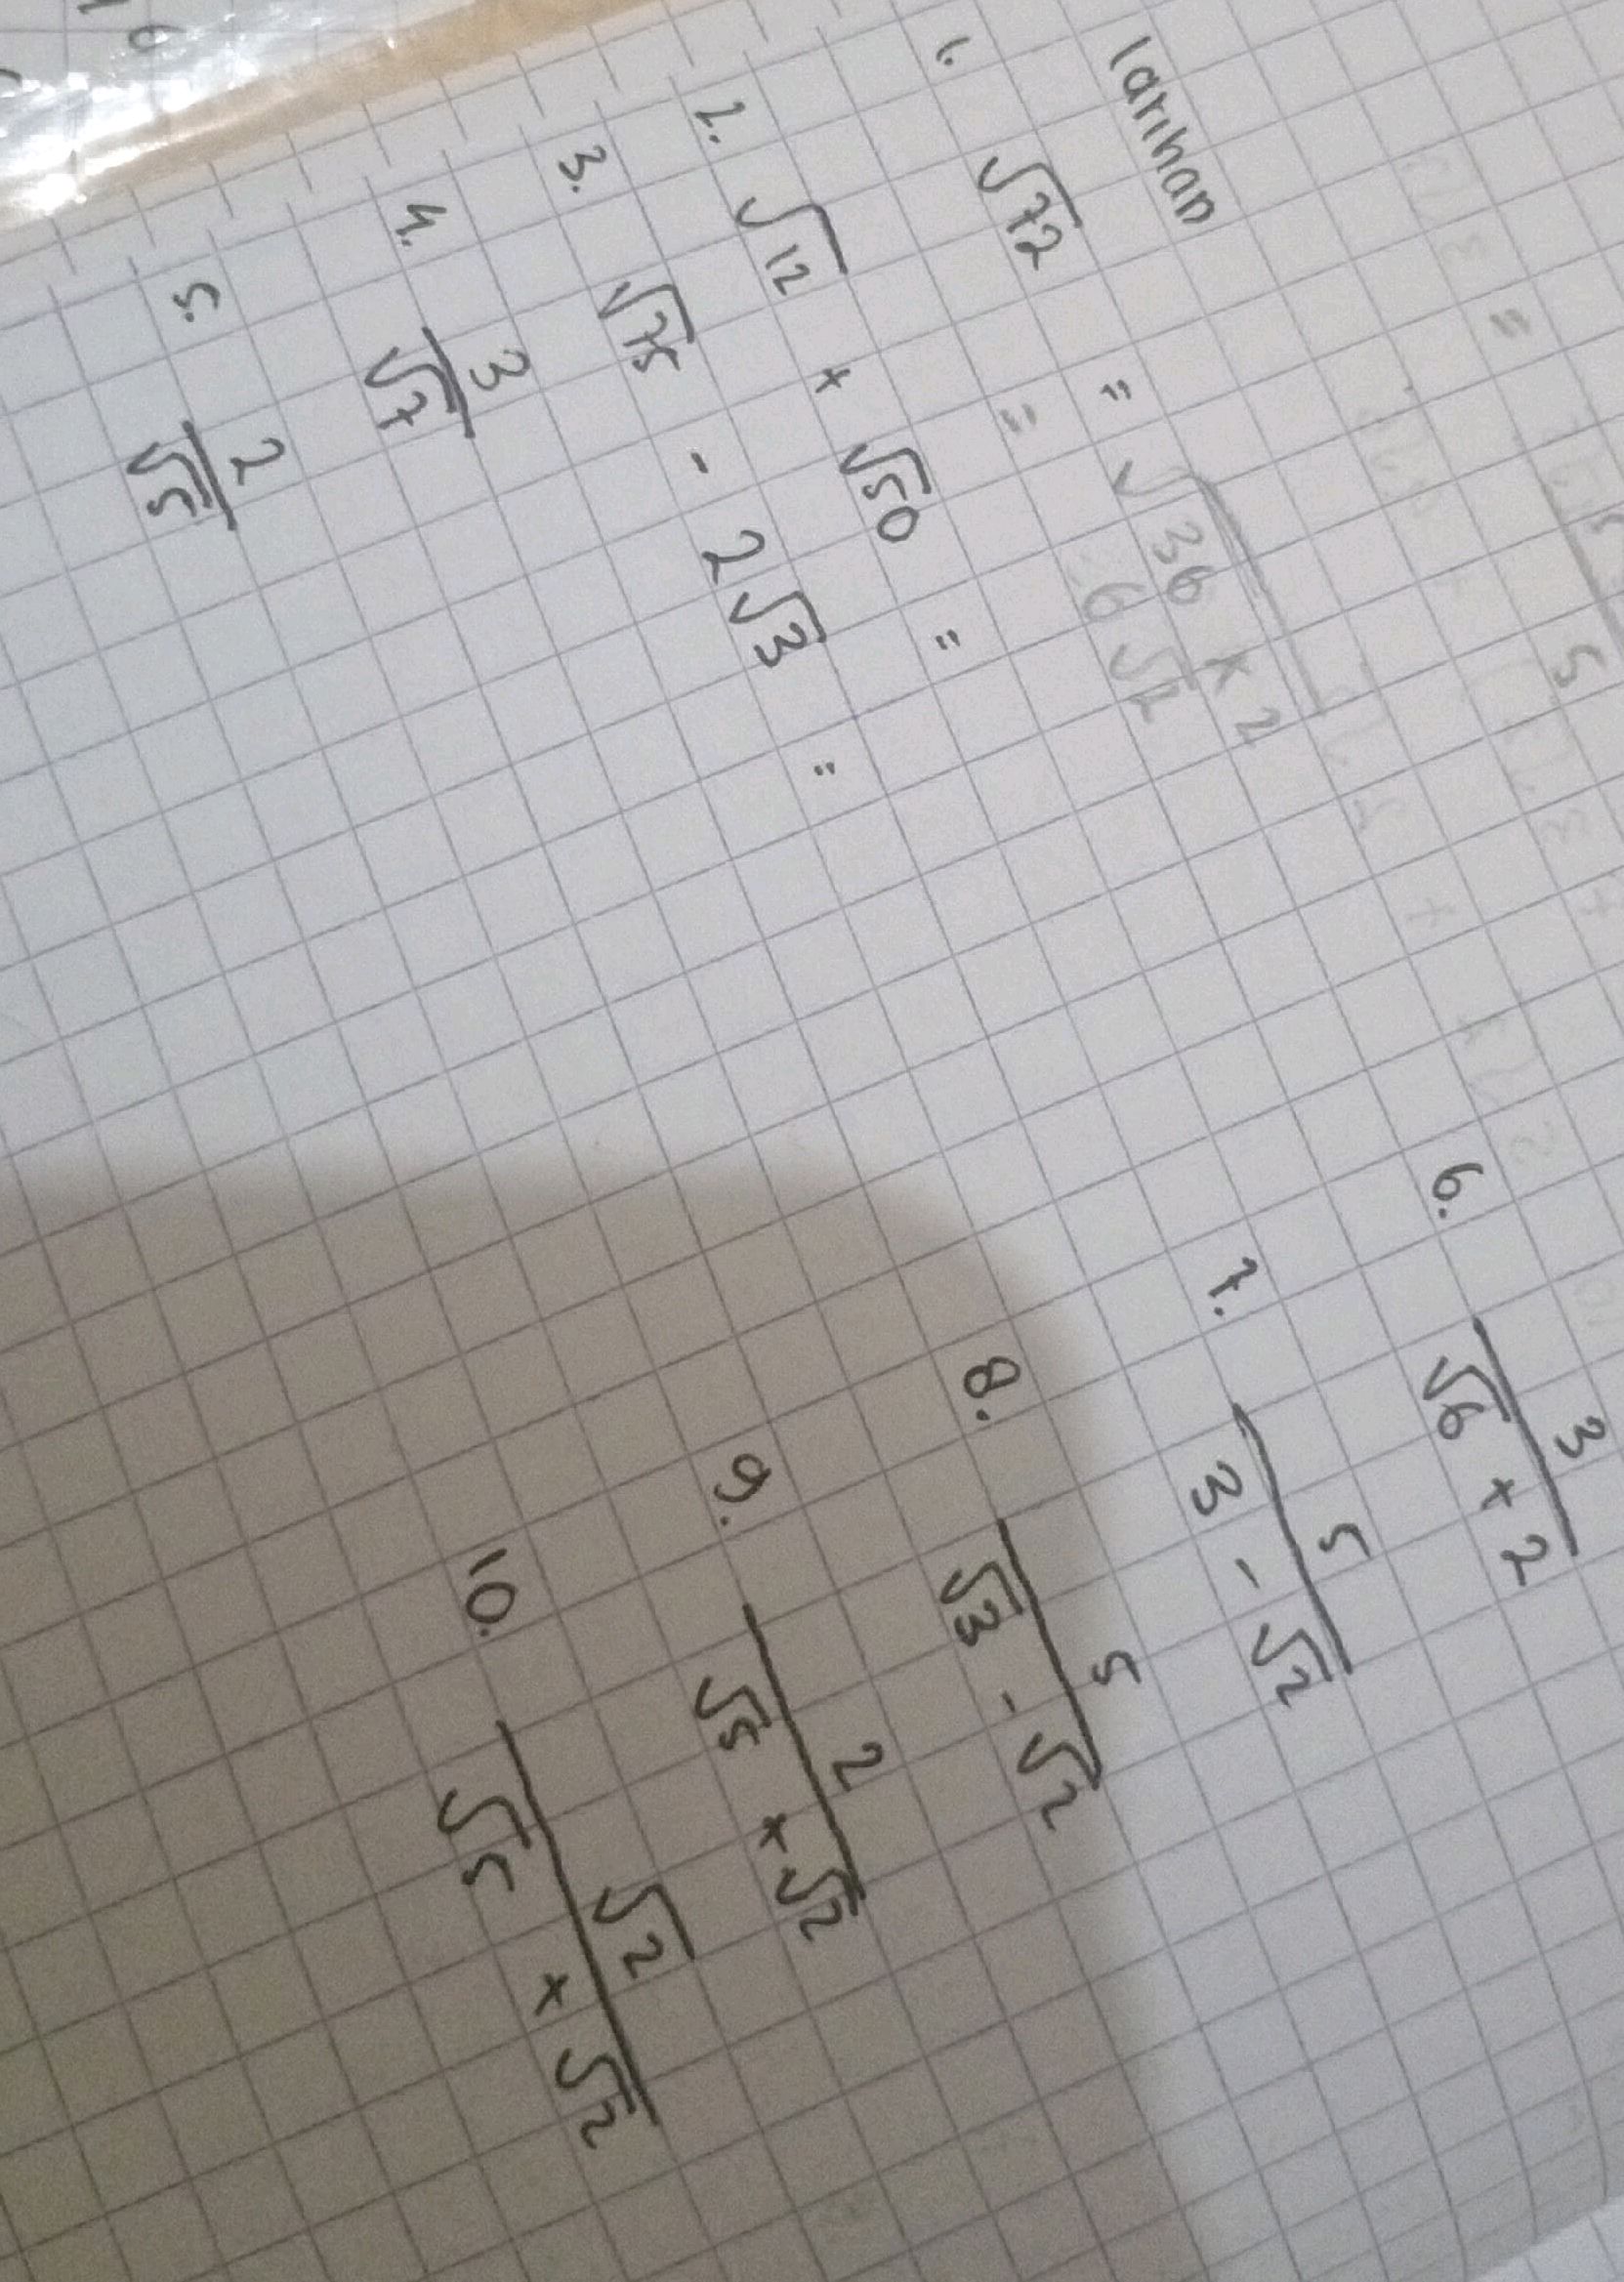 latihan
1. √72 = √36 x 2
= 6√2
2. √12 + √50 =
3. √75 - 2√3 =
4. 3/√7
5. 2/√5
6. 3/(√6 + 2)
7. 5/(3 - √2)
8. 5/(√3 - √2)
9. 2/(√5 + √2)
10. √2/(√5 + √2)